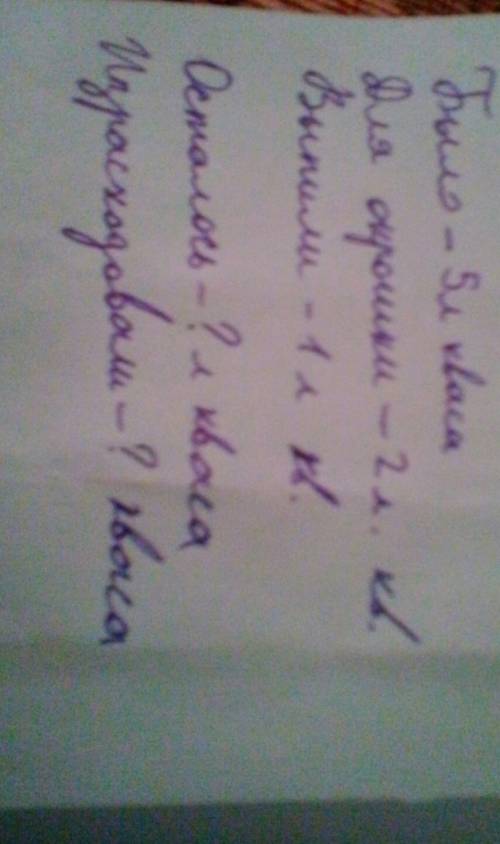 Было - 5л кваса
Для окрошки - 2 л. кв.
Выпили - 1 л кв.
Осталось - ? л кваса
Израсходовали - ? кваса